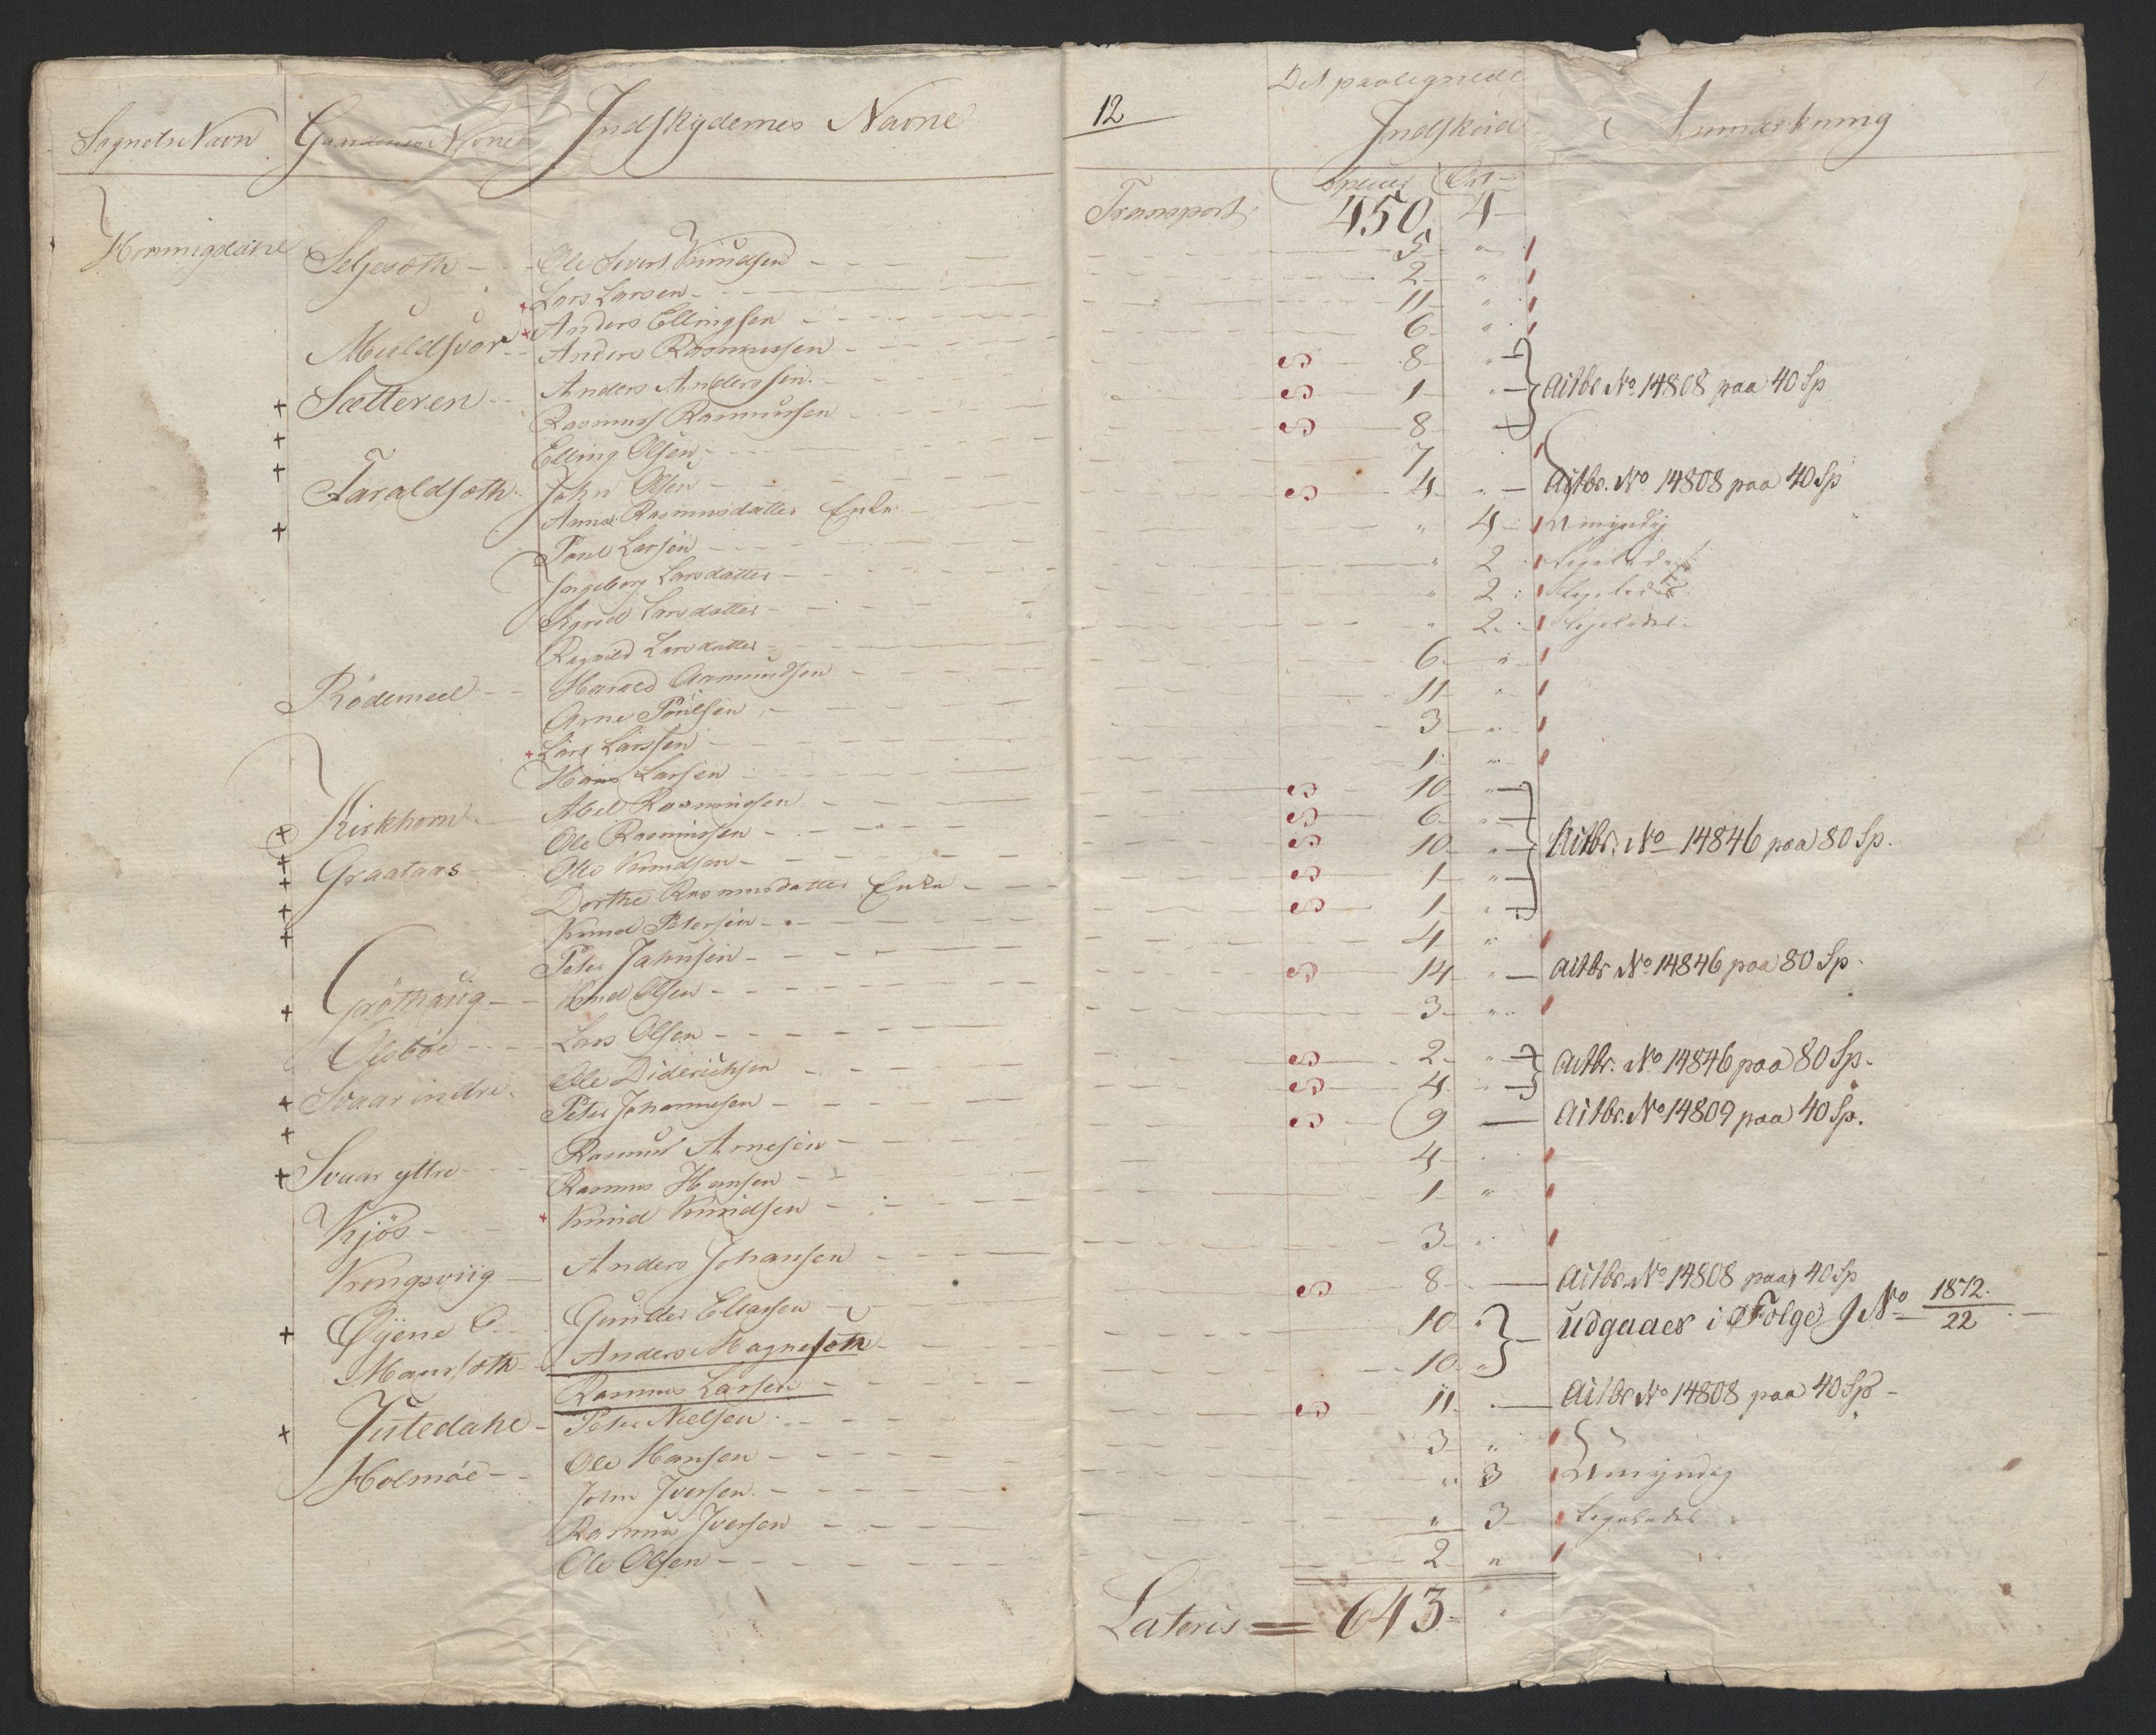 Sognets Navn Gaardenes Navne Indskydernes Navne
Hornnigdahl Seljesæth Ole Sivert Knudsen
Lars Larsen
Muldsvor Anders Ellingsen
Anders Rasmussen
Sætteren Anders Anderssen
Rasmus Rasmussen
Elling Olsen
Taraldsæth John Olsen
Anna Rasmusdatter Enke
Poul Larsen
Ingeborg Larsdatter
Sigrid Larsdatter
Ragnild Larsdatter
Rödemeel Harald Aamundsen
Arne Poulsen
Lars Larssen
Hans Larsen
Kirkhorn Abel Rasmussen
Ole Rasmussen
Graataas Ole Knudsen
Dorthe Rasmusdatter Enke
Knud Petersen
Peter Jahnsen
Gröthaug Knud Olsen
Otteböe Lars Olsen
Ole Diderichsen
Svaar indre Peter Johannesen
Rasmus Arnesen
Svaar yttre Rasmus Hansen
Kjös Knud Knudsen
Kongsviig Anders Johansen
Øyene Gunder Eliassen
Maursæth Anders Magnesøn
Rasmus Larsen
Jutedahl Peter Nielsen
Ole Hansen
Holmöe John Iversen
Rasmus Iversen
Ole Olsen
12 Det paalignede
Indskud Anmærkning
Species Ort
Transport 450 4
5 "
2 "
11 "
6 "
S 8 "
S 1 " Aitbr No 14808 paa 40 Sp
S 8
7
S 4 " Aitbr. No 14808 paa 40 Sp
" 4 Umyndig
" 2 Ligeledes
" 2 Ligeledes
" 2 Ligeledes
6 "
11 "
3 "
1 "
S 10 "
S 6 "
S 10 " Aitbr. No 14846 paa 80 Sp.
S 1 "
S 1 "
4 "
S 14 " Aitbr No 14846 paa 80 Sp.
3 "
S 2 " Aitbr. No 14846 paa 80 Sp.
S 4 "
S 9 Aitbr. No 14809 paa 40 Sp.
4
1 "
3 "
S 8 Aitbr. No 14808 paa 40 Sp
10 " udgaaer i Følge J No 1872./22
10 "
S 11 Aitbr No 14808 paa 40 Sp
3 "
" 3 Umyndig
" 3 Ligeledes
2 "
Lateris = 643 "